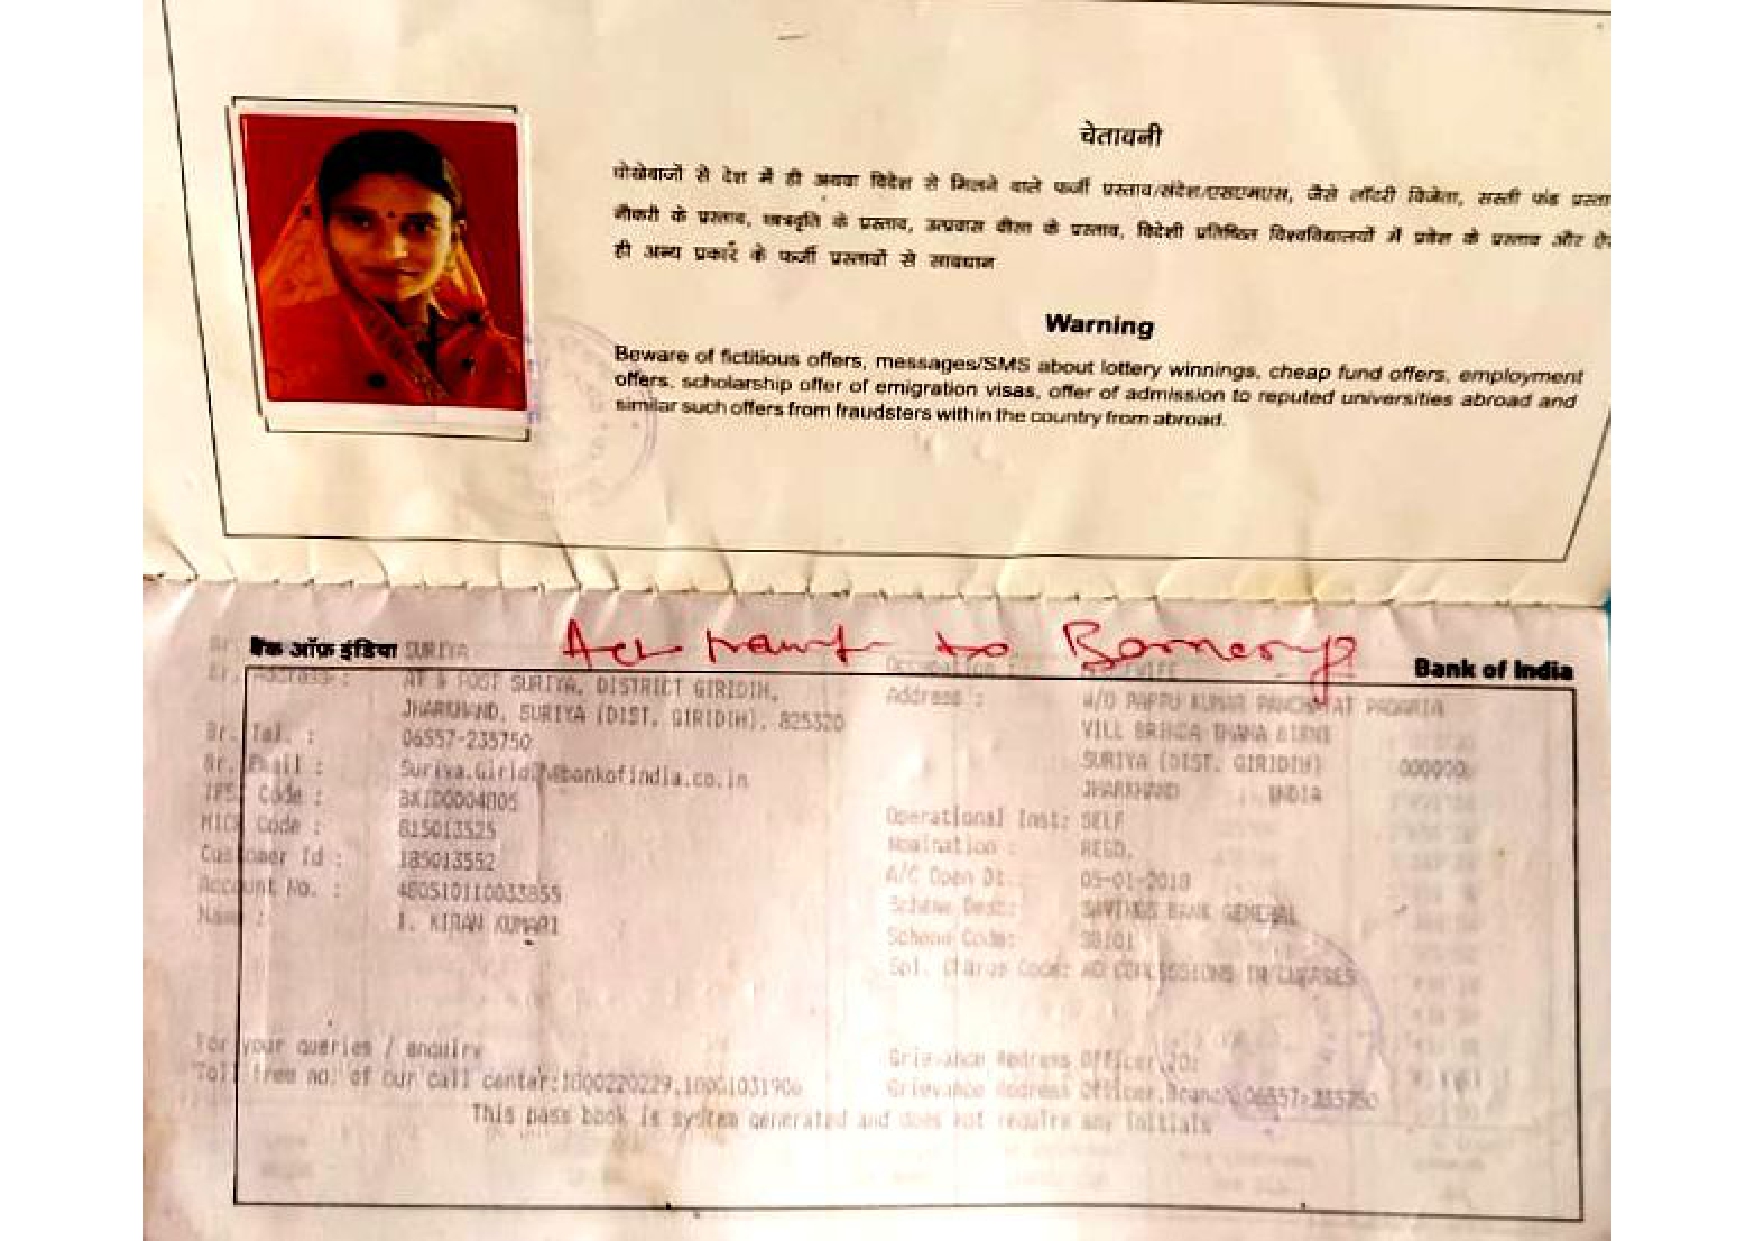 चेतावनी
धोखेबाजों से देश में ही अथवा विदेश से मिलने वाले फर्जी प्रस्ताव/संदेश/एसएमएस, जैसे लॉटरी विजेता, सस्ती फंड प्रस्ता
नौकरी के प्रस्ताव, छात्रवृति के प्रस्ताव, उत्प्रवास वीसा के प्रस्ताव, विदेशी प्रतिष्ठित विश्वविद्यालयों में प्रवेश के प्रस्ताव और ऐ
ही अन्य प्रकार के फर्जी प्रस्तावों से सावधान
Warning
Beware of fictitious offers, messages/SMS about lottery winnings, cheap fund offers, employment
offers, scholarship offer of emigration visas, offer of admission to reputed universities abroad and
similar such offers from fraudsters within the country from abroad.
to
बैंक ऑफ़ इंडिया SURIYA
Bank of India
Br. Address : AT & POST SURIYA, DISTRICT GIRIDIH,
JHARKHAND, SURIYA (DIST. GIRIDIH). 825320
Br. Tel. : 06557-235750
Br. Email : Suriya.Giridih@bankofindia.co.in
IFSC Code : BKID0004805
MICR Code : 815013525
Customer Id : 185013552
Account No. :
Name : 1. KIRAN KUMARI
Occupation :
Address : W/O PAPPU KUMAR PANCHAYAT
VILL THANA BIRNI
SURIYA (DIST. GIRIDIH) 000000
JHARKHAND INDIA
Operational Inst: SELF
Nomination : REGD.
A/C Open Dt. 05-01-2018
Scheme Desc: SAVINGS BANK GENERAL
Scheme Code: SB101
For your queries / enquiry
Toll free no. of our call center:
Grievance Redress Officer,ZO:
Grievance Redress Officer,Branch 06557-235750
This pass book is system generated and does not require any initials